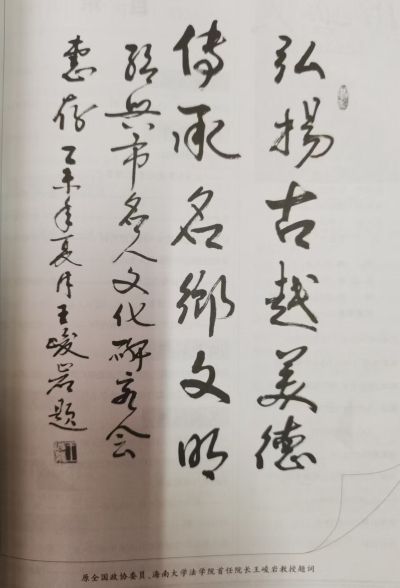 弘揚古越美德
傳承名鄉文明
紹興市名人文化研究会
惠存 乙未年夏月王峻岩題
原全国政协委员、海南大学法学院首任院长王峻岩教授题词